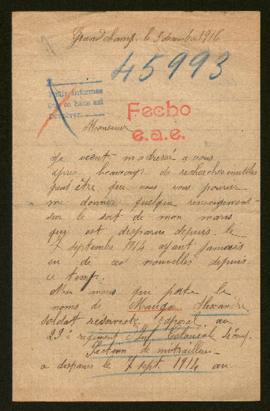 Grandchamp, le 9 decembre 1916
45993
Fecho
e.a.e.
Monsieur
Je vient m'adresé a vous
après beaucoup de recherches inutiles
peut être que vous vous pouvez
me donner quelque renseignement
sur le sort de mon mari
qui est disparu depuis le
7 septembre 1914 ayant jamais
eu de ces nouvelles depuis
ce temp.
mari qui porte le
noms de Alexandre
soldat reserviste caporal au
23e regiment Inf Coloniale
Section de mitrailleuse
a disparu le 7 sept. 1914 au